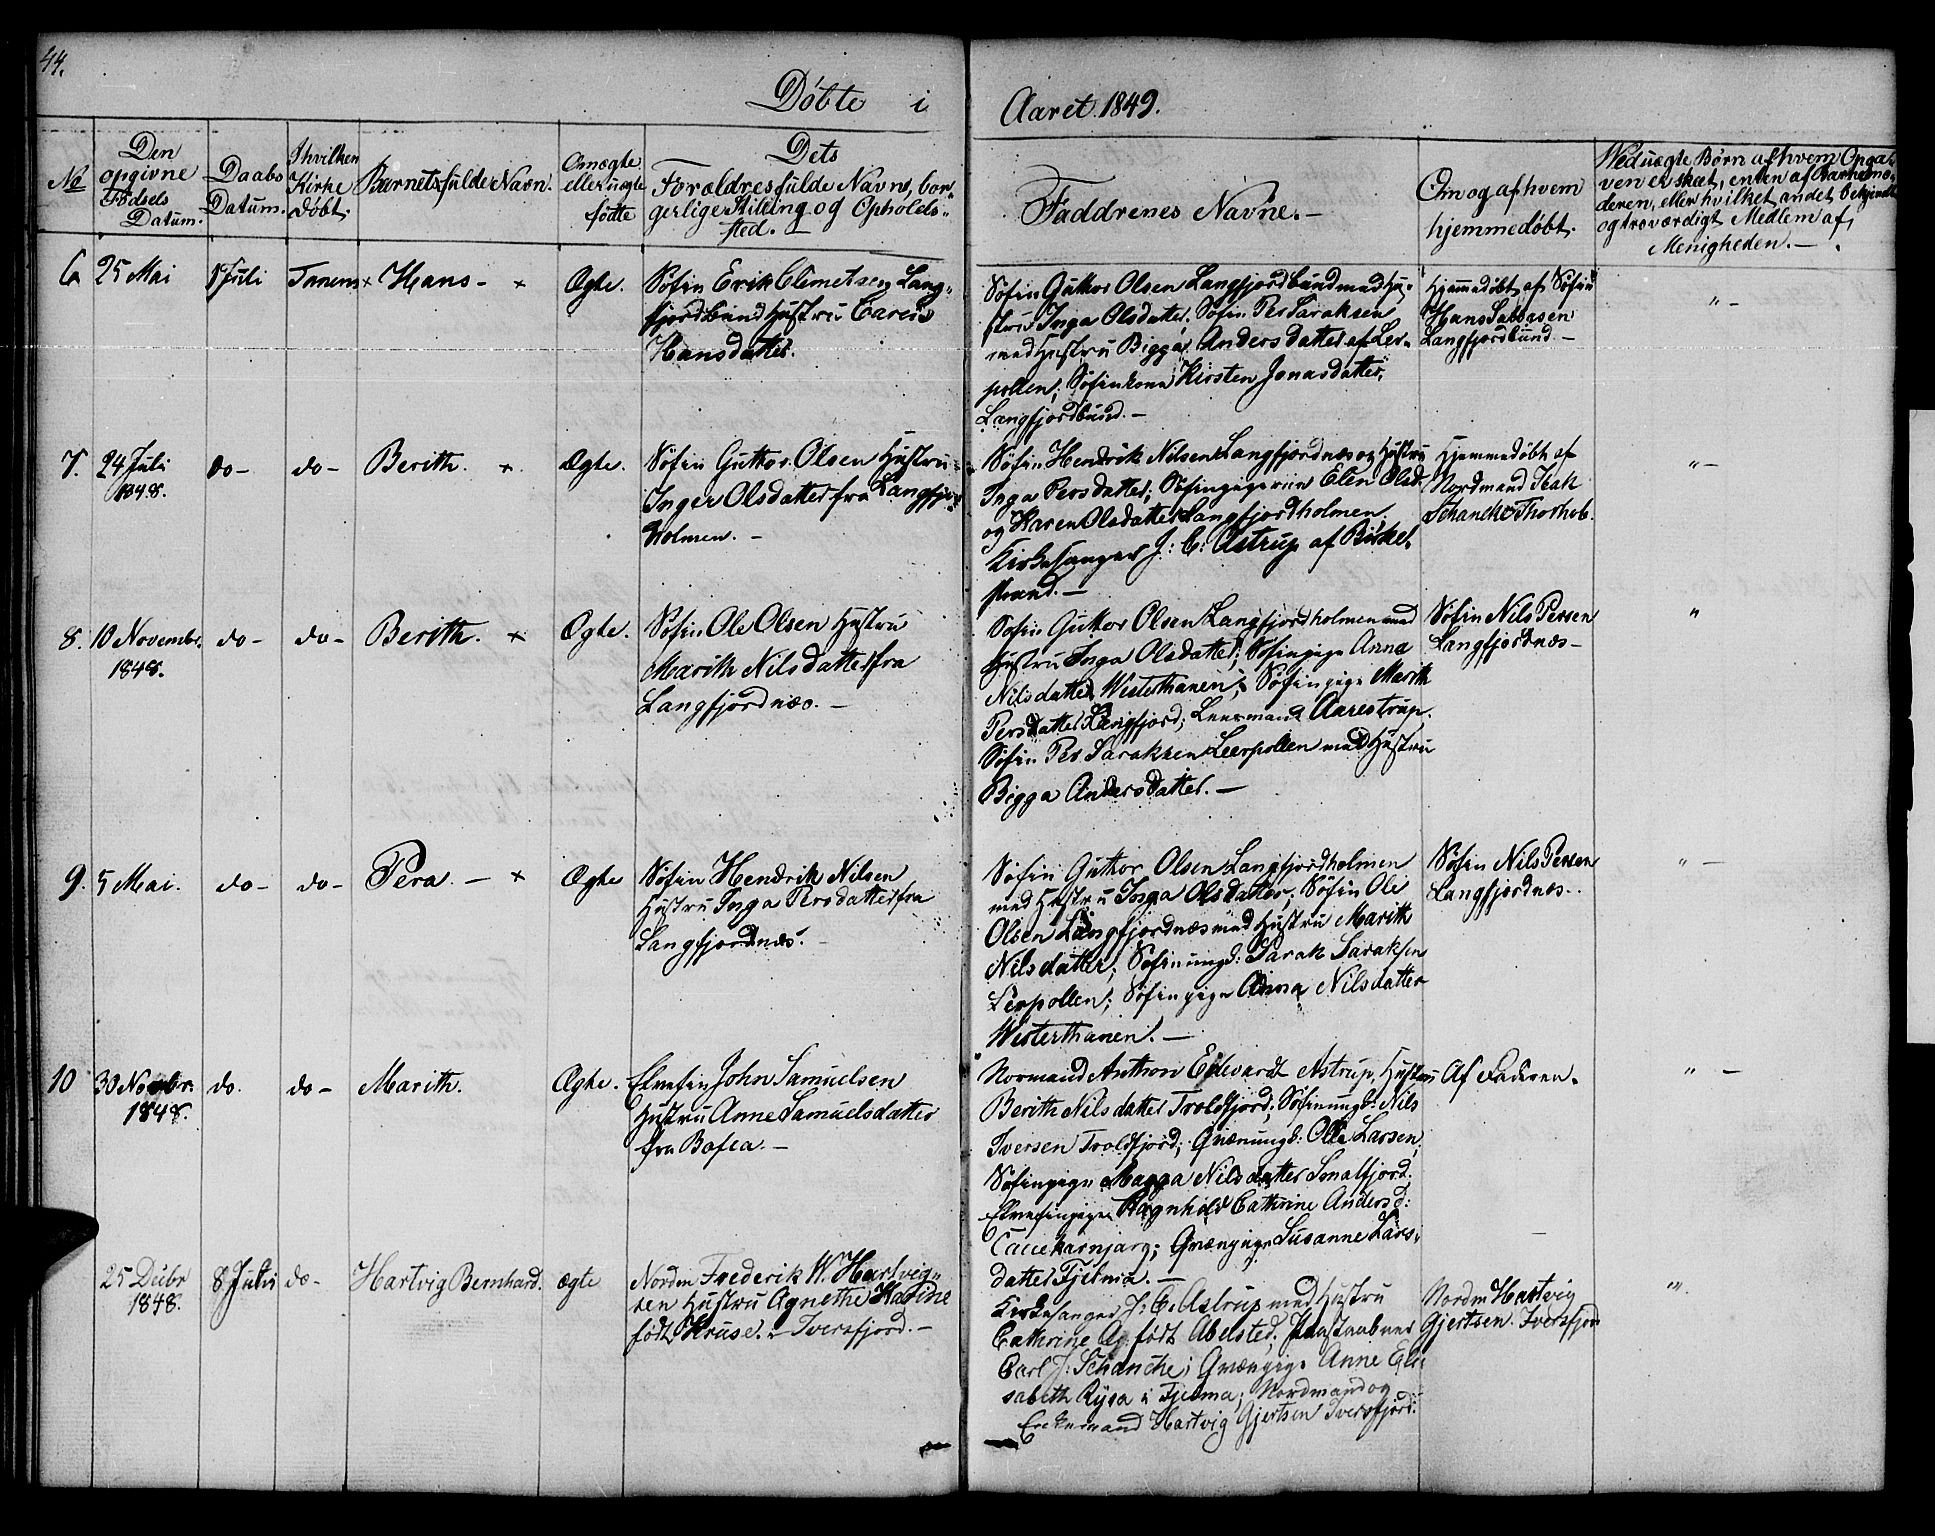 44.
Döbte i
Aaret 1849.
No
Den opgivne Fødsels Datum.
Daabs Datum.
I hvilken Kirke døbt.
Barnets fulde Navn.
Om ægte eller uægte fødte
Dets Forældres fulde Navne, borgerlige Stilling og Opholdssted.
Faddrenes Navne.–
Om og af hvem hjemmedøbt.
Ved uægte Børn af hvem Opgaven er skeet, enten af Barnemoderen, eller hvilket andet bekjendt og troværdigt Medlem af Menigheden.–
6 25 Mai
1 Juli
Tanens
× Hans – ×
Ægte.
Søfin Erik Clemetsen Lang-
fjordbund Hustru Caren
Hansdatter.
Søfin Guttor Olsen Langfjordbund med Hu-
stru Inga Olsdatter; Søfin Per Saraksen
med Hustru Bigga Andersdatter af Ler-
pollen; Søfinkone Kirsten Jonasdatter,
Langfjordbund.–
Hjemmedøbt af Søfin
Hans
Langfjordbund.–
" –
7. 24 Juli
1848.
do –
do –
Berith. ×
Ægte.
Søfin Guttor Olsen Hustru
Inger Olsdatter fra Langfjord
holmen. –
Søfin Hendrik Nilsen Langfjordnæs og Hustru
Inga Persdatter; Søfinpige Elen Olsd.
og Karen Olsdatter Langfjordholmen.
Kirkesanger J: C: Astrup af Birke-
strand.–
Hjemmedøbt af
Nordmand Isak
Schancke Thorhob.
" –
8. 10 Novembr.
1848.
do –
do –
Berith. ×
Ægte.
Søfin Ole Olsen Hustru
Marith Nilsdatter fra
Langfjordnæs. –
Søfin Guttor Olsen Langfjordholmen med
Hustru Inga Olsdatter; Søfinpige Anna
Nilsdatter Westerthanen; Søfinpige Marith
Persdatter Langfjord; Leensmand Aarestrup.
Søfin Per Saraksen Leerpollen med Hustru
Bigga Andersdatter. –
Søfin Nils Persen
Langfjordnæs –
"
9. 5 Mai.
do –
do –
Pera. – ×
Ægte
Søfin Hendrik Nilsen
Hustru Inga Persdatter fra
Langfjordnæs. –
Søfin Guttor Olsen Langfjordholmen
med Hustru Inga Olsdatter; Søfin Ole
Olsen Langfjordnæs med Hustru Marith
Nilsdatter; Søfinungk: Sarak Saraksen
Lerpollen; Søfinpige Anna Nilsdatter
Westerthanen. –
Søfin Nils Persen
Langfjordnæs..
" –
10 30 Novbr.
1848.
do.
do –
Marith.
Ægte.
Elvefin John Samuelsen
Hustru Anne Samuelsdatter
fra Bofea. –
Normand Anthon Edevardt Astrup, Hustru
Berith Nilsdatter Troldfjord; Søfinungk: Nils
Iversen Troldfjord; Qvænungk: Ole Larsen,
Søfinpige Magga Nilsdatter Smalfjord.
Elvefinpige Ragnhild Cathrine Andersd:
; Qvænpige Susanne Lars-
datter Fjelma. –
Af Faderen.
" –
25 Debr
1848.
8 Juli
do –
Hartvig Bernhard.
ægte
Nordm Frederik W. Hartvig-
sen Hustru Agnethe Katrine
født Kruse. – Iversfjord. –
Kirkesanger J: C. Astrup med Hustru
Cathrine A. født Abelsted;
Carl J: Schanche; Qvænpige Anne Eli-
sabeth Rysa i Fjelma; Nordmand og
Enkemand Hartvig Gjertsen Iversfjord.
Nordm Hartvig
Gjertsen. Iversfjord
"